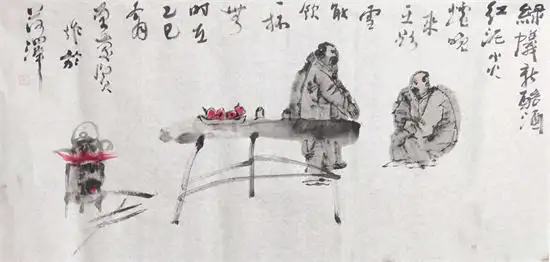 綠蟻新醅酒
红泥小火
爐晚
來
天欲
雪
能
飲
一杯
無
时在
乙巳
作於
菏澤